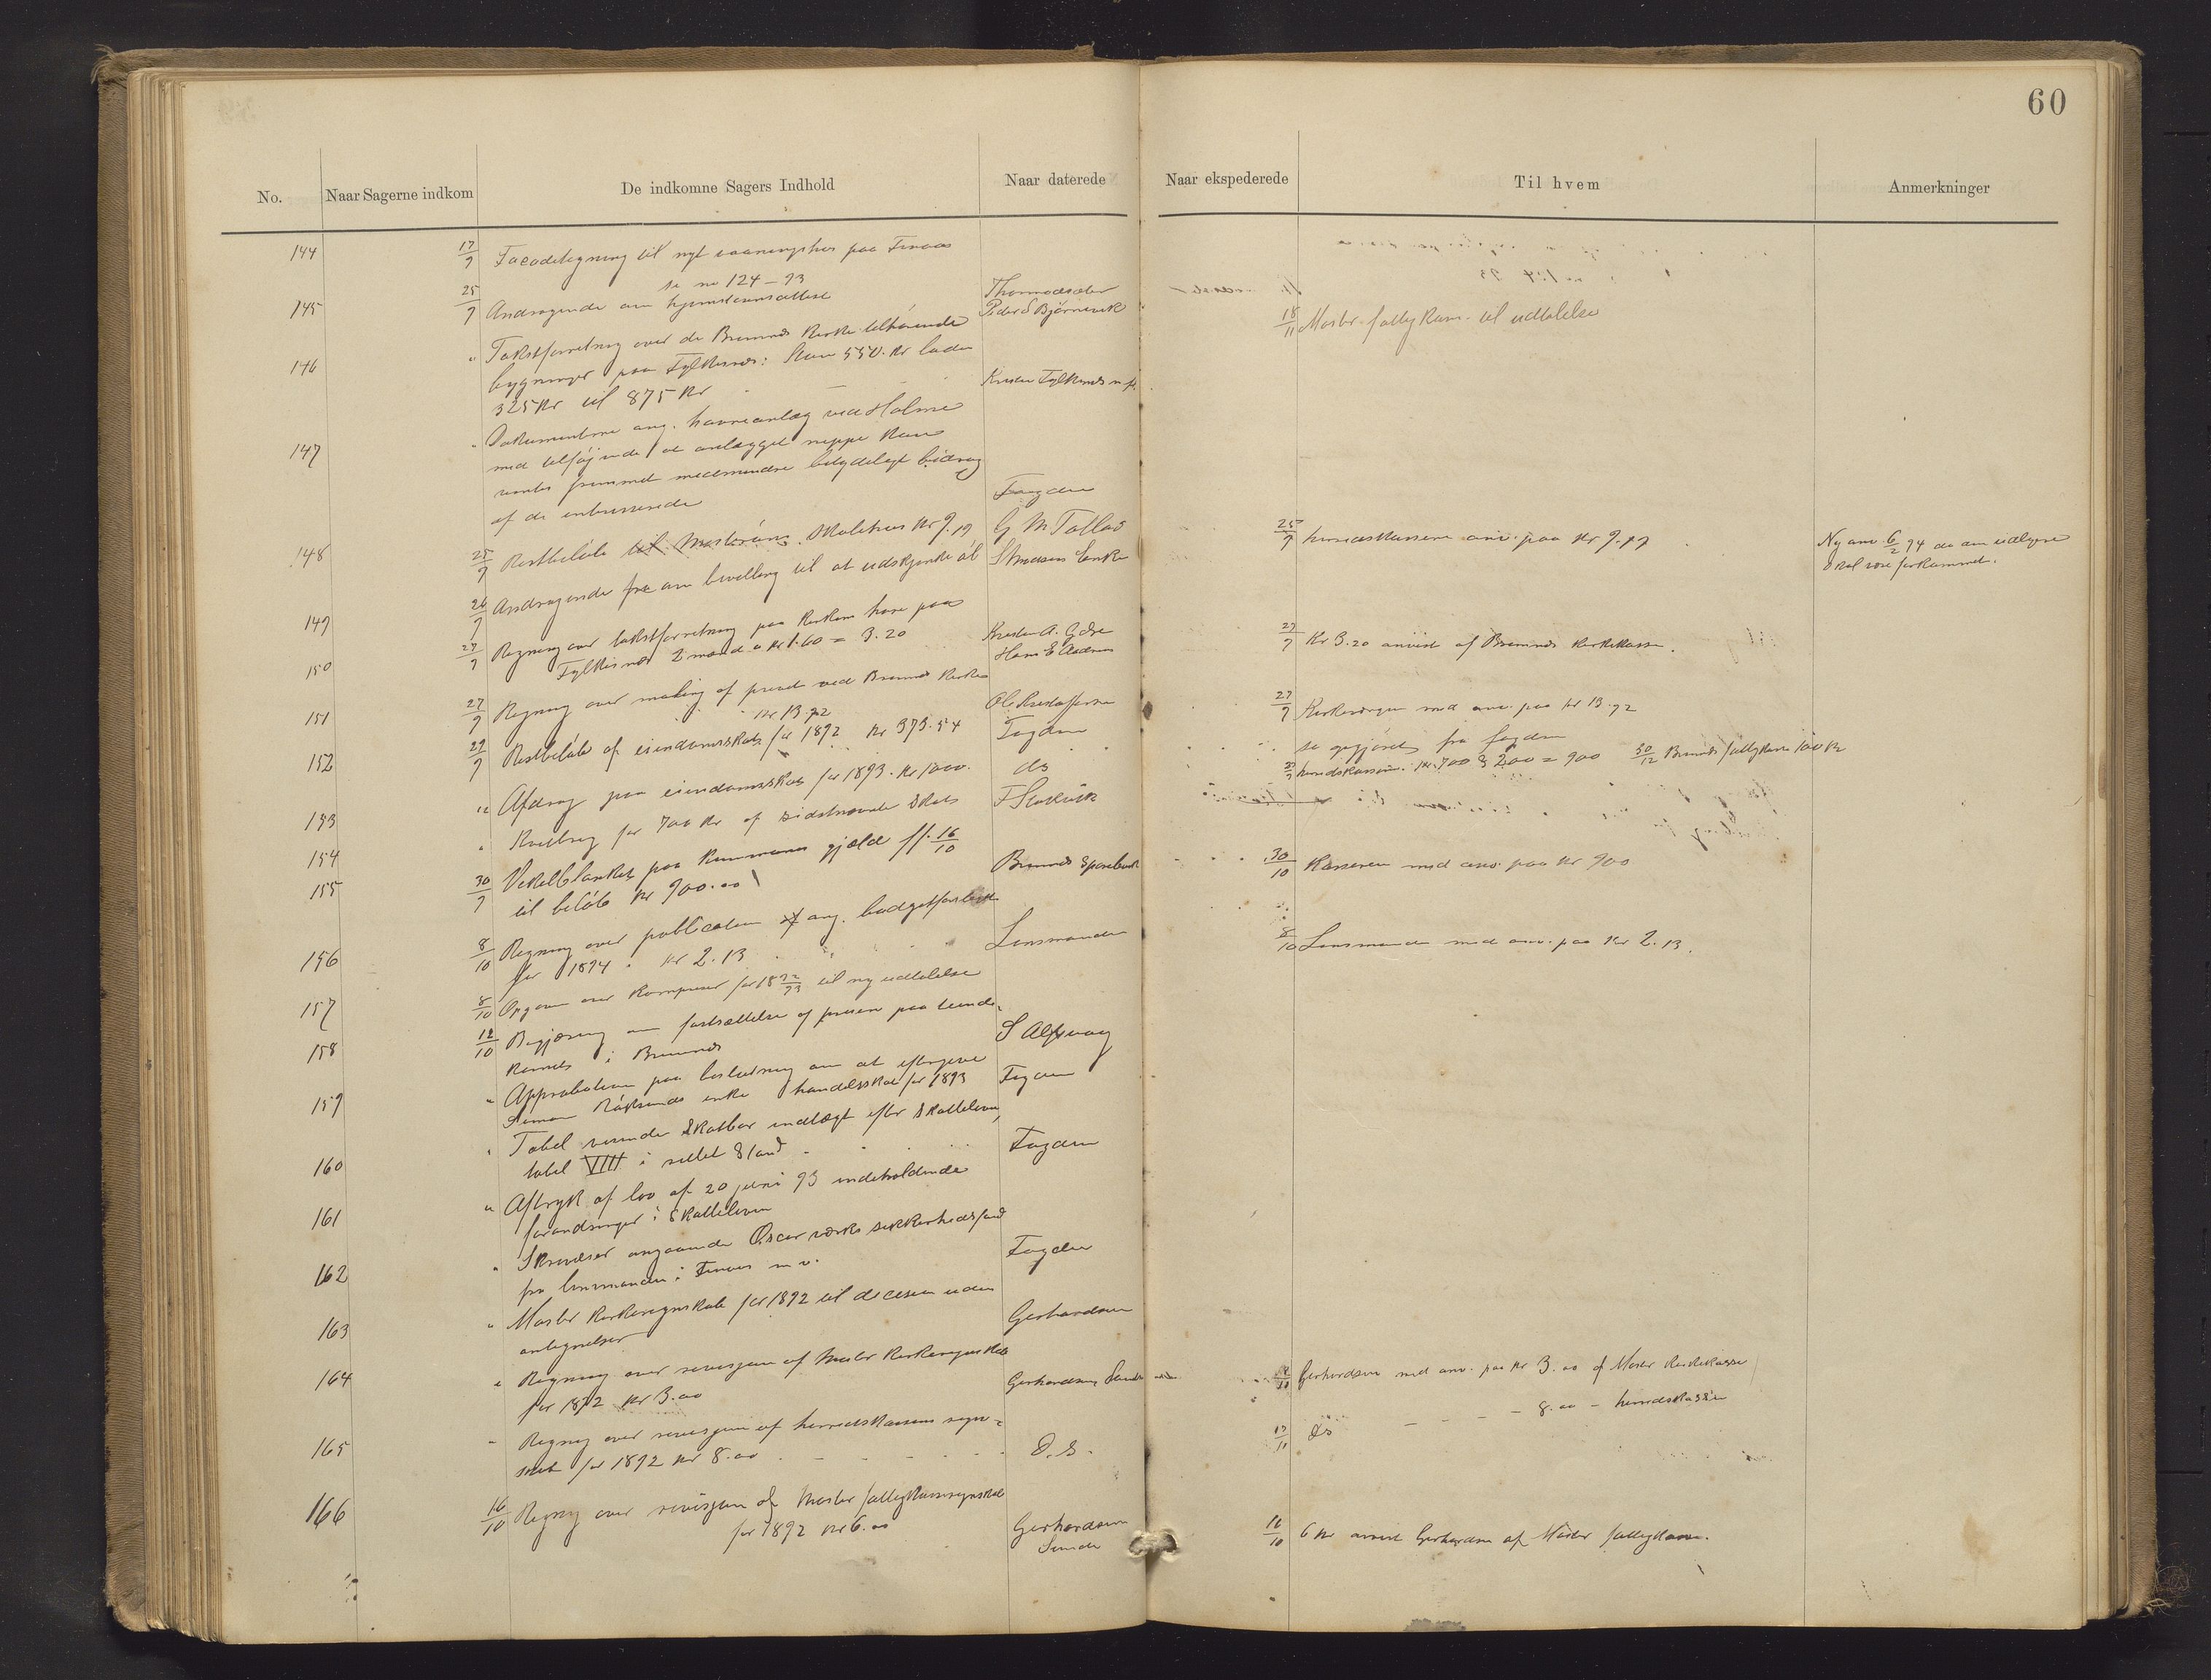 60
No.
Naar Sagerne indkom
De indkomne Sagers Indhold
Naar daterede
Naar ekspederede
Til hvem
Anmerkninger
144 17/9 Facadetegning til nyt vaaningshus paa Finaas
se no 124 - 93
145 25/9 Andragende om hjemstavnsattest
Peder S Bjørnevik
18/11 Moster fattigkom. til udtalelse
146 " Takstforretning over de Bremnes Kirke tilhørende
bygninger paa Fylkesnes: Stue 550 Kr lade
325 Kr til 875 Kr
147 " Dokumenterne ang. havneanlæg ved Holme
med tilføjende at anlægget neppe kan
ventes fremmet medmindre betydeligt bidrag
af de interesserede
Fogden
148 25/9 Restbeløb til Mosterøens Skolehus Kr 9.19
G M Tollas
25/9 herredskassereren anv. paa Kr 9.19
Ny anv. 6/2 94 da den tidligere
skal være forkommet.
149 26/9 Andragende fra om bevilling til at udskjenke øl
Enke
150 27/9 Regning over takstforretning paa Kirkens huse paa
Fylkesnes 2 mænd a Kr 1.60 = 3.20
27/9 Kr 3.20 anvist af Bremnes Kirkekasse.
151 27/9 Regning over maling af præst ved Bremnes Kirke
Kr 13.92
27/9 Kirkeværgen med anv. paa Kr 13.92
152 29/9 Restbeløb af eiendomsskat for 1892 Kr 373.54
Fogden
se opgjøret fra fogden
153 " Afdrag paa eiendomsskat for 1893. Kr 1000.
do
herredskassereren Kr 700 & 200 = 900 30/12 Bremnes fattigkasse 100 Kr
154 " Kvittering for 700 Kr af sidstnævnte Skat
155 30/9 Vekselblanket paa kommunens gjæld ff. 16/10
til beløb Kr 900.00
Bremnes Sparebank
30/10 Kassereren med anv. paa Kr 900
156 8/10 Regning over publication af ang. budgetforslag
for 1894 Kr 2.13
Lensmanden
8/10 Lensmanden med anv. paa Kr 2.13.
157 8/10 Opgave over Kornpriser for 1892/93 til ny udtalelse
158 12/10 Begjæring om fastsættelse af prisen paa tiende-
kornet i Bremnes
S Alsvaag
159 " Approbation paa beslutning om at eftergive
Simon enke handelsskat for 1893
Fogden
160 " Tabel visende Skatbar indtægt efter Skatteloven,
tabel VIII i stedet
Fogden
161 " Aftryk af lov af 20 juni 93 indeholdende
forandringer i Skatteloven
162 " Skrivelser angaaende Oscar værks sikkerhedsfond
fra lensmanden i Finaas m.v.
Fogden
163 " Moster Kirkeregnskab for 1892 til decision uden
antegnelser
Gerhardsen
164 " Regning over revisjon af Moster Kirkeregnskab
for 1892 Kr 3.00
Gerhardsen Sunde
Gerhardsen med anv. paa Kr 3.00 af Moster Kirkekasse
165 " Regning over revisjon af herredskassens regn-
skab for 1892 Kr 8.00
D.S.
17/10 Do - - - - 8.00 - herredskassen
166 16/10 Regning over revisjon af Moster fattigkasseregnskab
for 1892 Kr 6.00
Gerhardsen
Sunde
16/10 6 Kr anvist Gerhardsen af Moster fattigkasse.